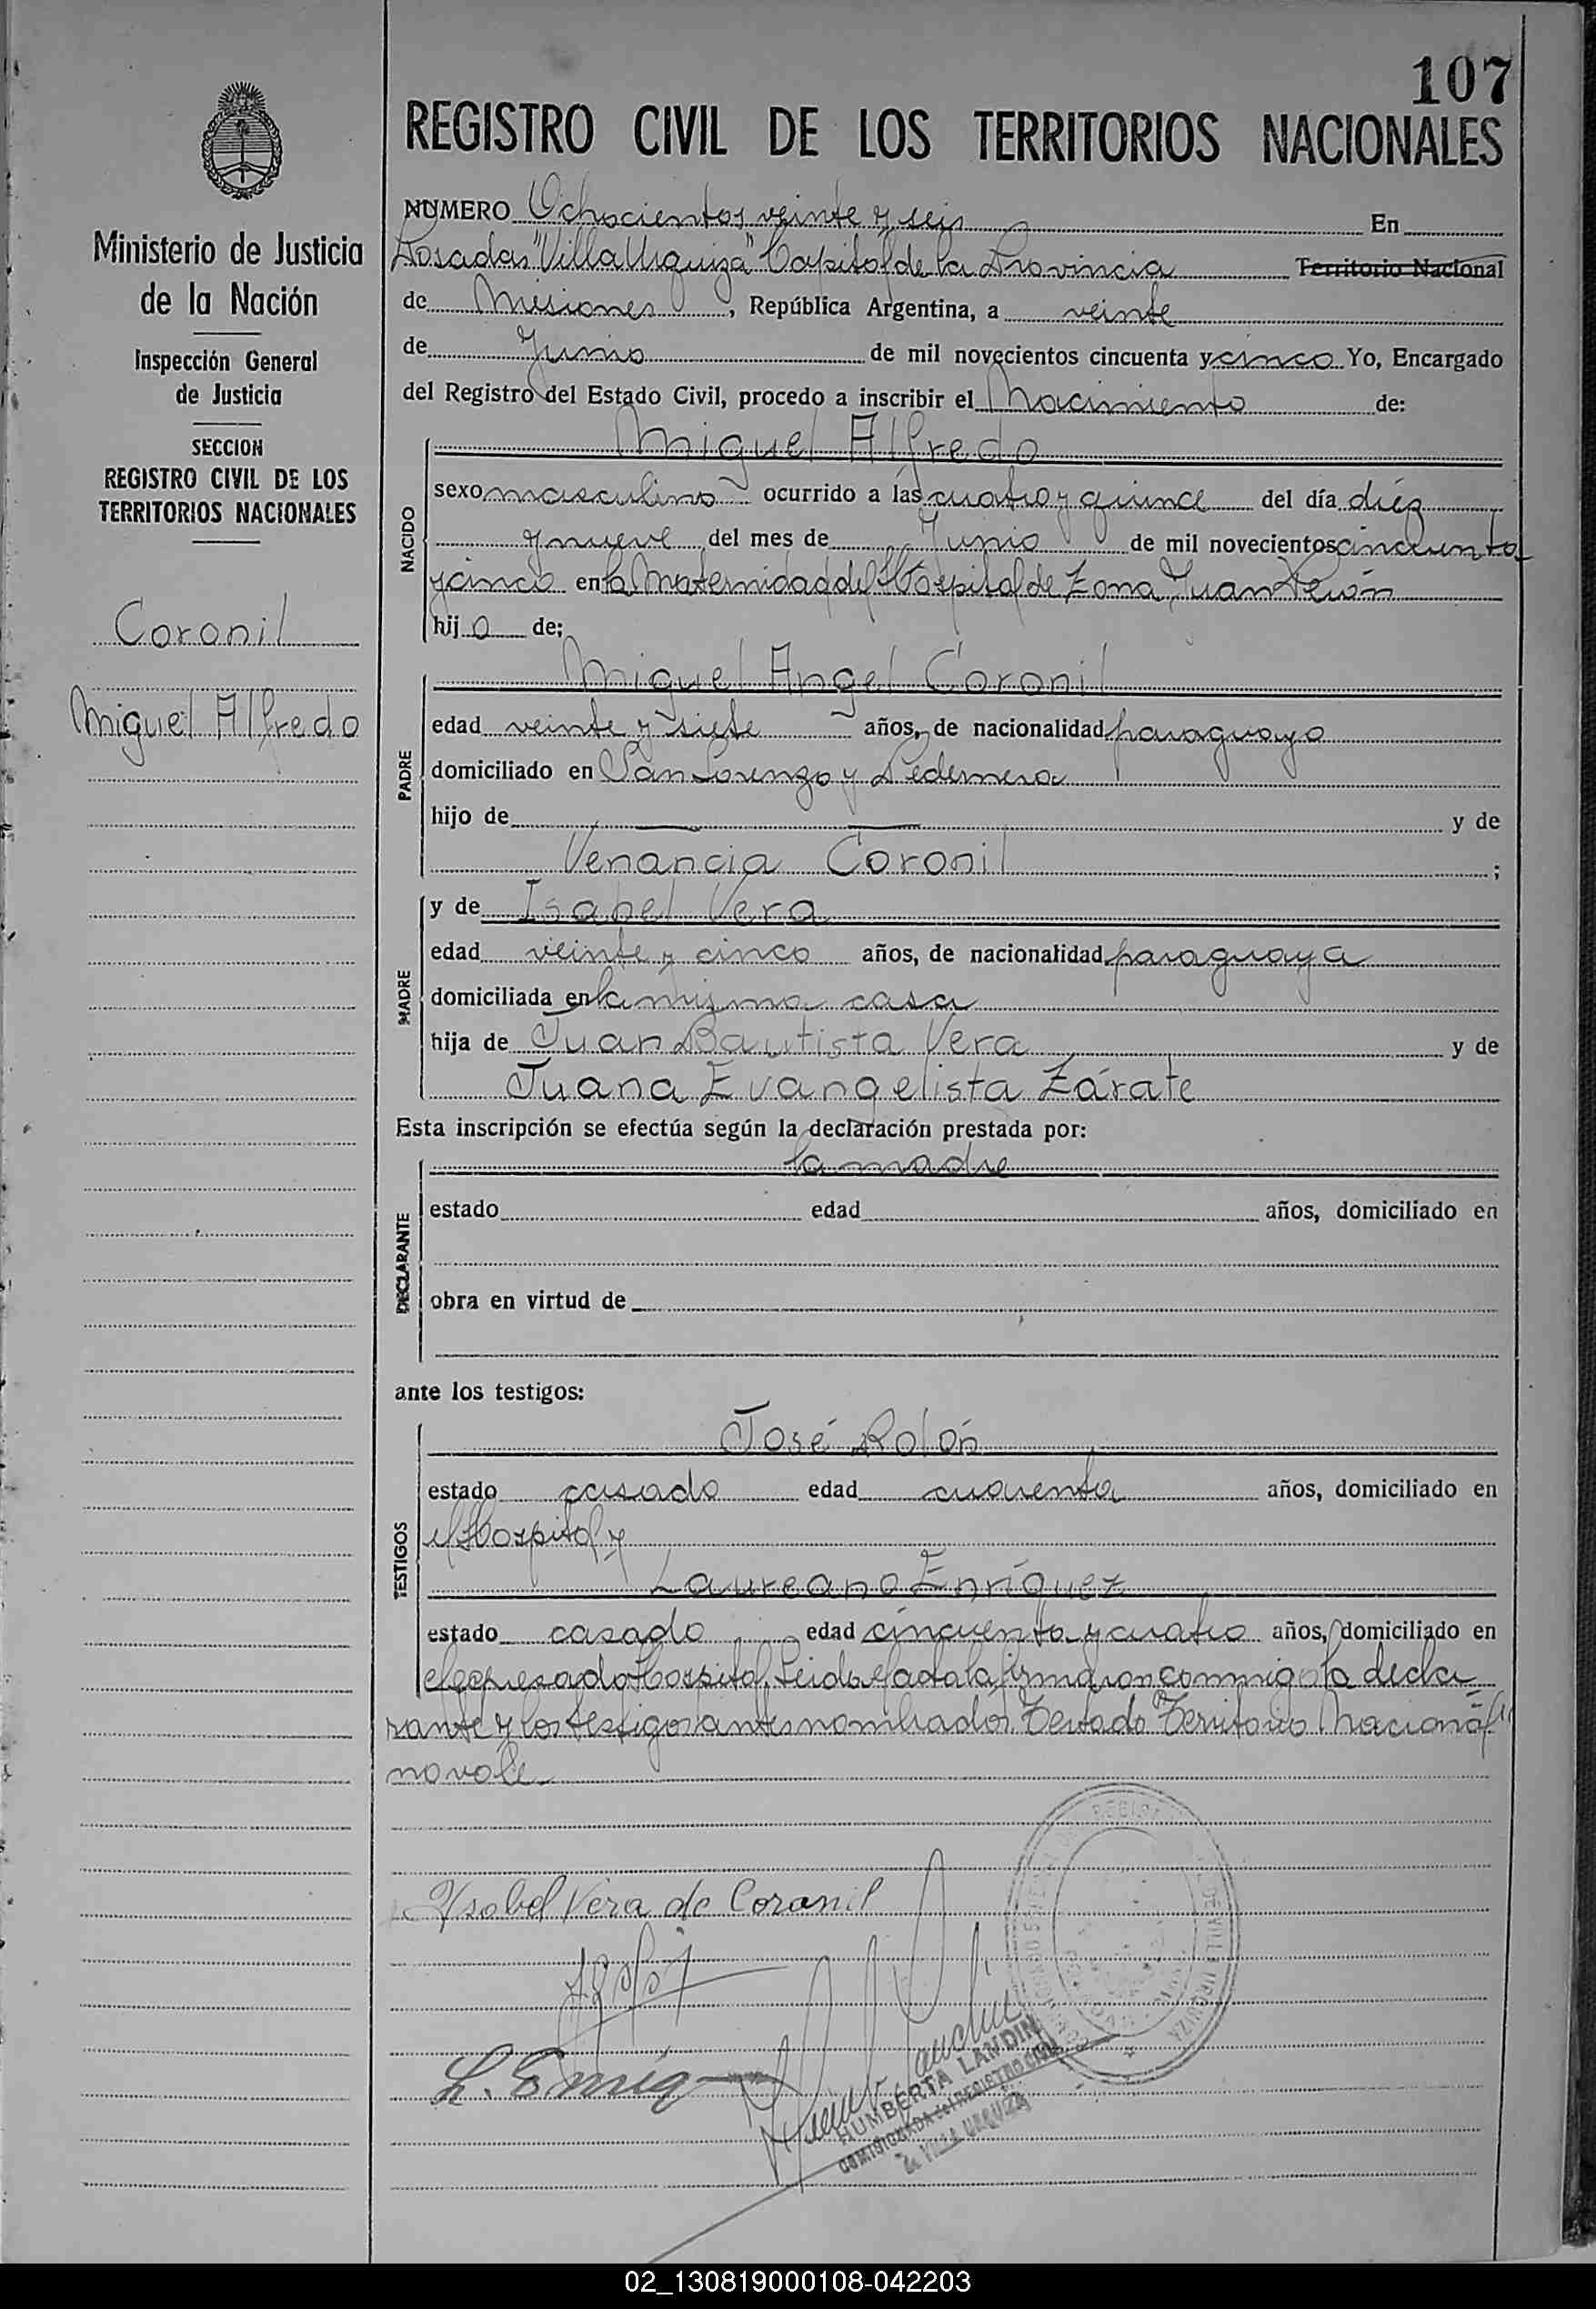 107
REGISTRO CIVIL DE LOS TERRITORIOS NACIONALES
Ministerio de Justicia
de la Nación
Inspección General
de Justicia
SECCION
REGISTRO CIVIL DE LOS
TERRITORIOS NACIONALES
Coronil
Miguel Alfredo
NUMERO Ochocientos veinte y seis En
Posadas "Villa Urquiza" Capital de la Provincia Territorio Nacional
de Misiones, República Argentina, a veinte
de Junio de mil novecientos cincuenta y cinco Yo, Encargado
del Registro del Estado Civil, procedo a inscribir el Nacimiento de:
NACIDO
Miguel Alfredo
sexo masculino ocurrido a las cuatro y quince del día diez
y nueve del mes de Junio de mil novecientos cincuenta
y cinco en la Maternidad del Hospital de Zona Juan Perón
hijo de:
PADRE
Miguel Angel Coronil
edad veinte y siete años, de nacionalidad paraguaya
domiciliado en San Lorenzo y Pedernera
hijo de y de
Venancia Coronil ;
MADRE
y de Isabel Vera
edad veinte y cinco años, de nacionalidad paraguaya
domiciliada en la misma casa
hija de Juan Bautista Vera y de
Juana Evangelista Zárate
Esta inscripción se efectúa según la declaración prestada por:
DECLARANTE
la madre
estado edad años, domiciliado en
obra en virtud de
ante los testigos:
TESTIGOS
José Rolón
estado casado edad cuarenta años, domiciliado en
el Hospital y
Laureano Enríquez
estado casado edad cincuenta y cuatro años, domiciliado en
el expresado Hospital. Leida el acta la firmaron conmigo la decla
rante y los testigos antes nombrados. Testado Territorio Nacional
no vale
Ysabel Vera de Coronil
HUMBERTA LANDIN
COMISIONADA del REGISTRO CIVIL
de VILLA URQUIZA
02_130819000108-042203